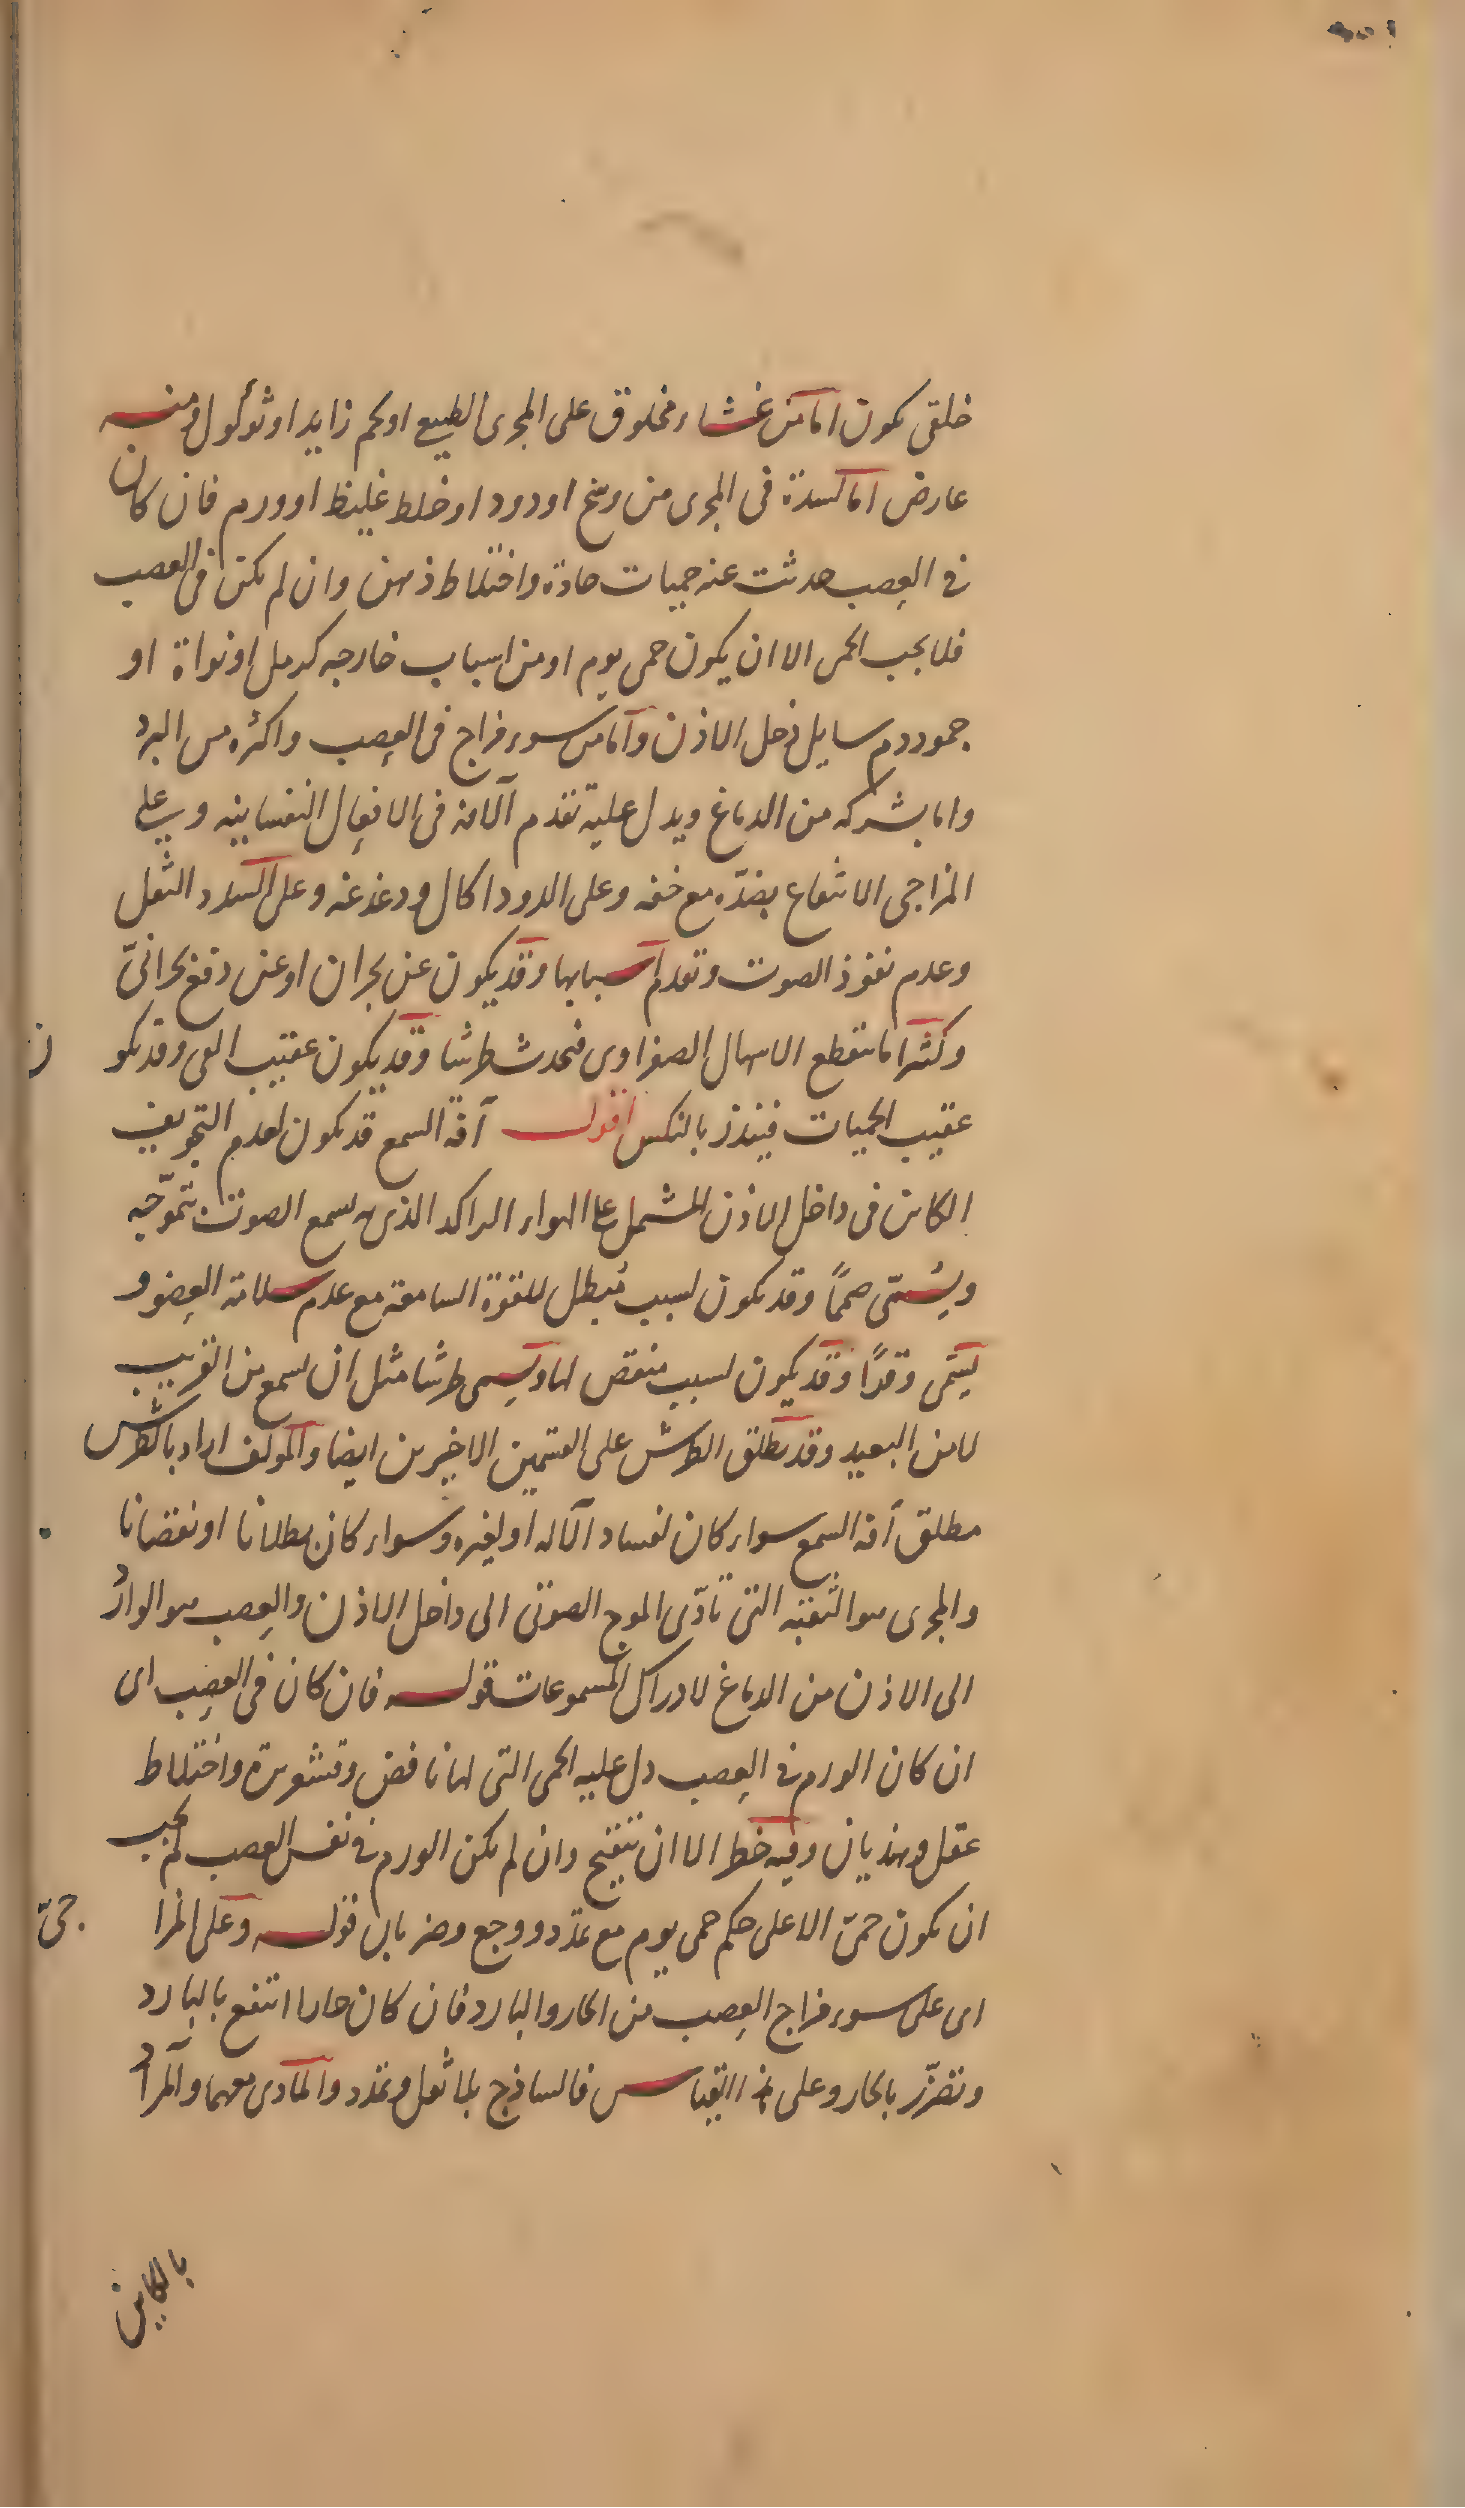 خلقى يكون اما من غشاء مخلوق على المجرى الطبيعى او لحم زايد او ثؤلول ومنه
عارض اما لسدة فى المجرى من وسخ او دود او خلط غليظ او ورم فان كان
فى العصب حدثت عنه حميات حادة واختلاط ذهن وان لم يكن فى العصب
فلا يجب الحمى الا ان يكون حمى يوم او من اسباب خارجه كرمل او نواة او
جمود دم سايل داخل الاذن واما من سوء مزاج فى العصب واكثره من البرد
واما بشركه من الدماغ ويدل عليه تقدم الآفه فى الافعال النفسانيه و على
المزاجى الانتفاع بضدّه مع خفه وعلى الدود اكال ودغدغه وعلى السدد الثقل
وعدم نفوذ الصوت وتقدم اسبابها وقد يكون عن بحران او عن دفع بحرانىّ
وكثيرا ما ينقطع الاسهال الصفراوى فيحدث طرشا وقد يكون عقيب القى وقد يكو
ن
عقيب الحميات فينذر بالنكس اقول آفة السمع قد يكون لعدم التجويف
الكاين فى داخل الاذن المشتمل على الهواء الراكد الذى به يسمع الصوت بتموّجه
ويُسمّى صممًا وقد يكون لسبب مُبطل للقوة السامعة مع عدم سلامة العضو و
يسَمّى وقرًا وقد يكون لسبب منقص لها ويسمى طرشا مثل ان يسمع من القريب
لا من البعيد وقد يطلق الطرش على القسمين الاخيرين ايضا والمولف اراد بالطرش
مطلق آفة السمع سواء كان لفساد الآله او لغيره وسواء كان بطلانا او نقصانا
والمجرى هو الثقبه التى تادّى الموج الصوتى الى داخل الاذن والعصب هو الوارد
الى الاذن من الدماغ لادراك المسموعات قوله فان كان فى العصب اى
ان كان الورم فى العصب دل عليه الحمى التى لها نافض وقشعريرة واختلاط
عقل وهذيان وفيه خطر الا ان يتقيح وان لم يكن الورم فى نفس العصب لم يجب
ان يكون حمىّ الا على حكم حمى يوم مع تمدد ووجع وضربان قوله وعلى المزا
جىّ
اى على سوء مزاج العصب من الحار والبارد فان كان حارا انتفع بالبارد
وتضرّر بالحار وعلى هذا القياس فالساذج بلا ثقل وتمدد والمادى معهما والمراد
بالكاين